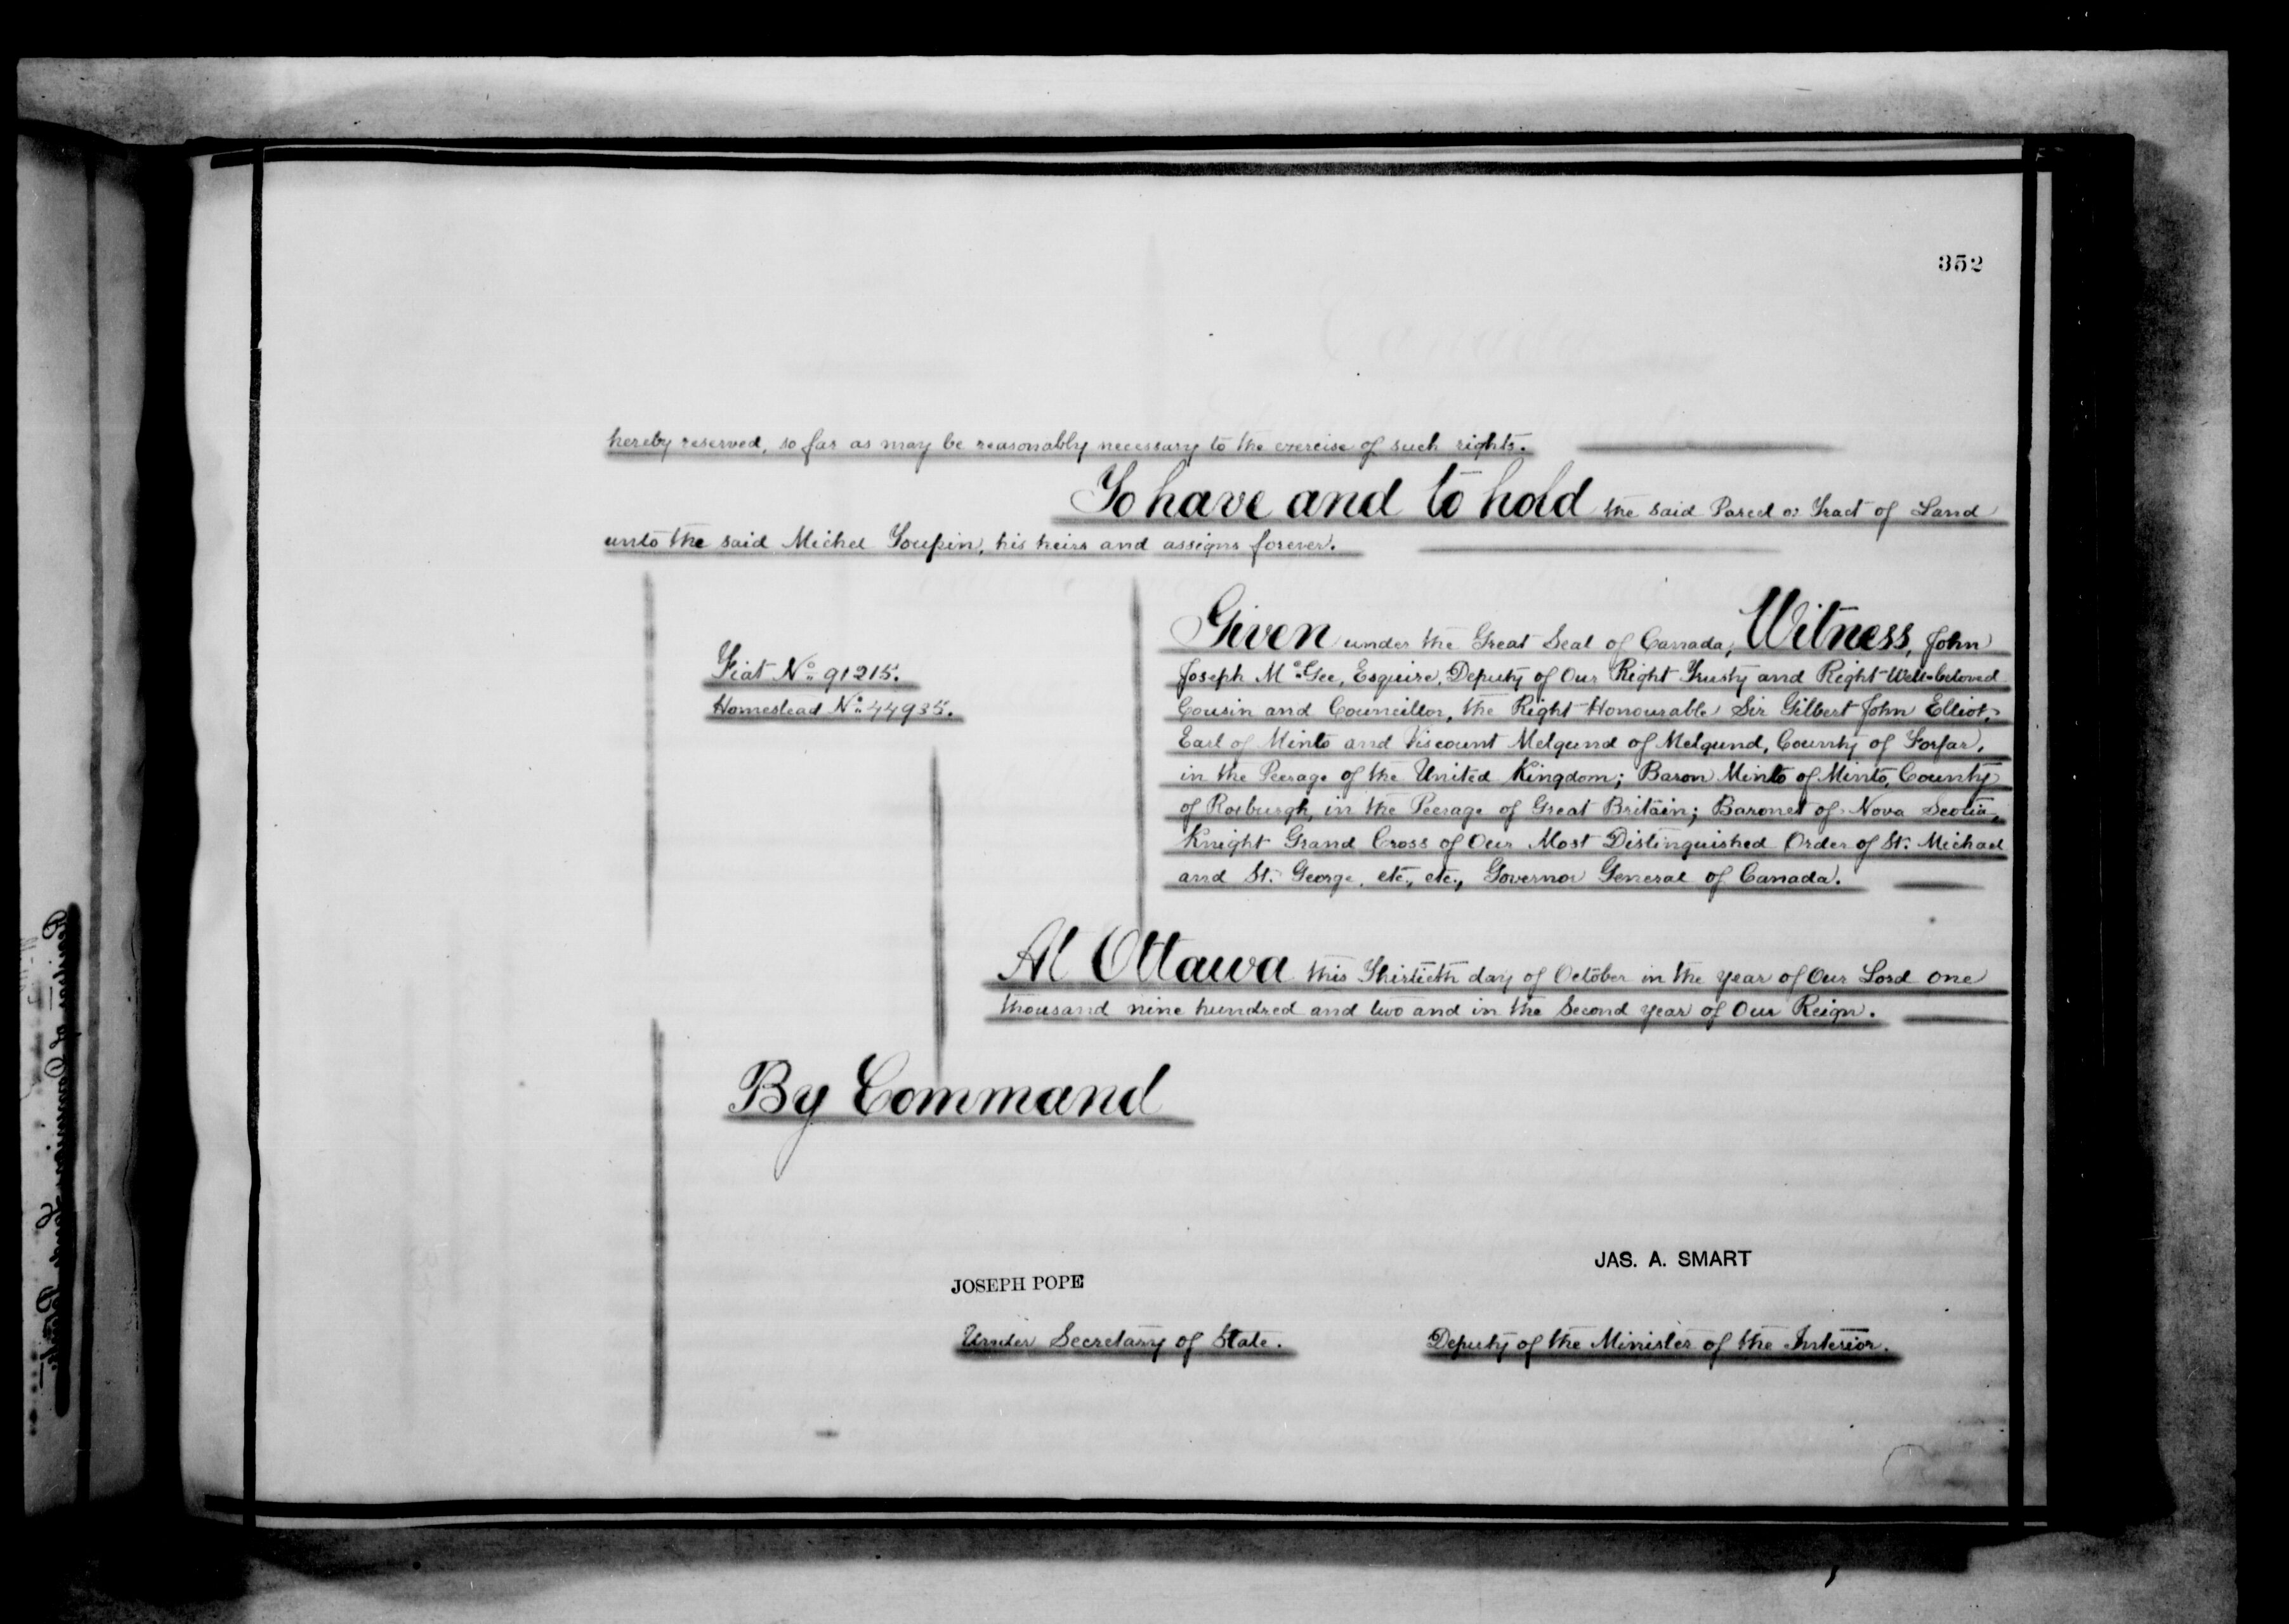 352
hereby reserved, so far as may be reasonably necessary to the exercise of such rights.
To have and to hold the said Parcel or Tract of Land
unto the said Michel Toupin, his heirs and assigns forever.
Given under the Great Seal of Canada; Witness, John
Joseph McGee, Esquire, Deputy of Our Right Trusty and Right Well-beloved
Cousin and Councillor, the Right Honourable Sir Gilbert John Elliot,
Earl of Minto and Viscount Melgund of Melgund, County of Forfar,
in the Peerage of the United Kingdom; Baron Minto of Minto, County
of Roxburgh, in the Peerage of Great Britain; Baronet of Nova Scotia,
Knight Grand Cross of Our Most Distinguished Order of St. Michael
and St. George, etc., etc., Governor General of Canada.
Fiat No. 91215.
Homestead No. 44935.
At Ottawa this Thirtieth day of October in the year of Our Lord one
thousand nine hundred and two and in the Second year of Our Reign.
By Command
JOSEPH POPE
Under Secretary of State.
JAS. A. SMART
Deputy of the Minister of the Interior.